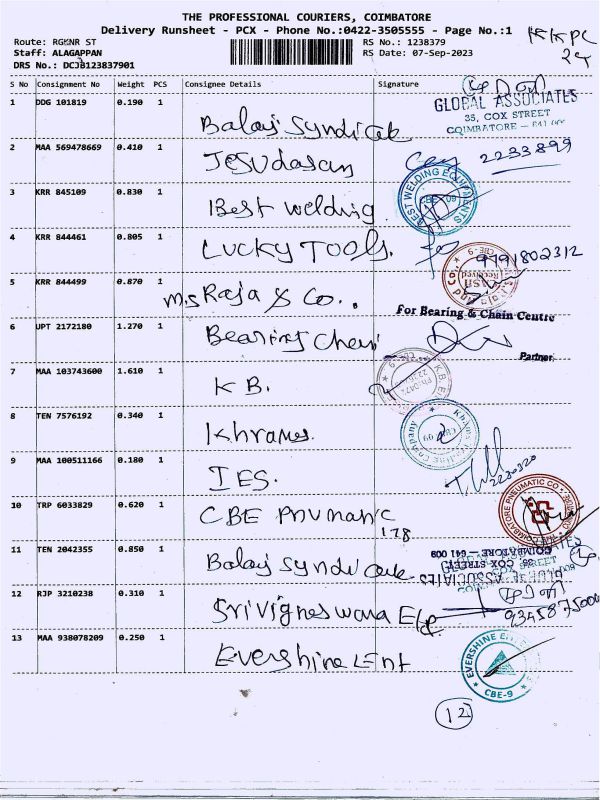 THE PROFESSIONAL COURIERS, COIMBATORE
Delivery Runsheet - PCX - Phone No.:0422-3505555 - Page No.:1
Route: RGKNR ST
RS No.: 1238379
Staff: ALAGAPPAN
RS Date: 07-Sep-2023
DRS No.: DCJB123837901
S No Consignment No Weight PCS Consignee Details Signature
1 DDG 101819 0.190 1
GLOBAL ASSOCIATES
35, COX STREET
COIMBATORE - 641 009
Balaji Syndicate
2 MAA 569478669 0.410 1
Jesudasan 2233899
3 KRR 845109 0.830 1
Best welding
BEST WELDING EQUIPMENTS
CBE-09
4 KRR 844461 0.805 1
LUCKY TOOLS. 9791802312
5 KRR 844499 0.870 1
M.S Raja & Co..
CBE-9
Received
For Bearing & Chain Centre
6 UPT 2172180 1.270 1
Bearing Chen
Partner
7 MAA 103743600 1.610 1
K B.
8 TEN 7576192 0.340 1
Khrames.
9 MAA 100511166 0.180 1
IES.
10 TRP 6033829 0.620 1
COIMBATORE PNEUMATIC CO
CBE Pnumatic
128
11 TEN 2042355 0.850 1
Balaji Syndicate
GLOBAL ASSOCIATES
35, COX STREET
COIMBATORE - 641 009
12 RJP 3210238 0.310 1
Sri Vigneswara Ele
13 MAA 938078209 0.250 1
Evershine Ent
EVERSHINE
CBE-9
12